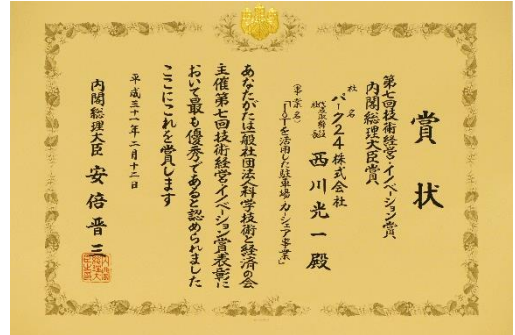 賞状
第七回技術経営・イノベーション賞
内閣総理大臣賞
社名
パーク24株式会社
代表取締役社長
西川光一殿
(事業名)
「IoTを活用した駐車場・カーシェア事業」
あなたがたは一般社団法人科学技術と経済の会
主催第七回技術経営・イノベーション賞表彰に
おいて最も優秀であると認められました
ここにこれを賞します
平成三十一年二月十二日
内閣総理大臣 安倍晋三